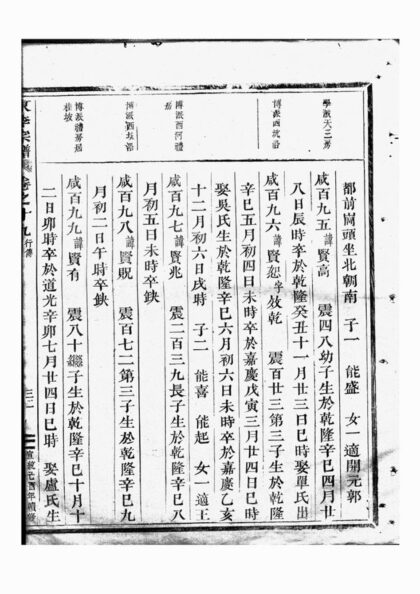 學派天三房
博派西
博派西河禮
房
博派西
博派禮房居
桂坡
都前崗頭坐北朝南 子一 能盛 女一適開元郭
咸百九五諱賢高 震四八幼子生於乾隆辛巳四月廿
八日辰時卒於乾隆癸丑十一月廿三日巳時娶單氏出
咸百九六諱賢恕字效乾 震百廿三第三子生於乾隆
辛巳五月初四日未時卒於嘉慶戊寅三月廿四日巳時
娶吳氏生於乾隆辛巳六月初六日未時卒於嘉慶乙亥
十二月初六日戌時 子二 能喜 能起 女一適王
咸百九七諱賢兆 震二百三九長子生於乾隆辛巳八
月初五日未時卒缺
咸百九八諱賢貺 震百七二第三子生於乾隆辛巳九
月初二日午時卒缺
咸百九九諱賢有 震八十繼子生於乾隆辛巳十月十
二日卯時卒於道光辛卯七月廿四日巳時 娶盧氏生
宗譜 卷之十九 行傳 宣統 年續修